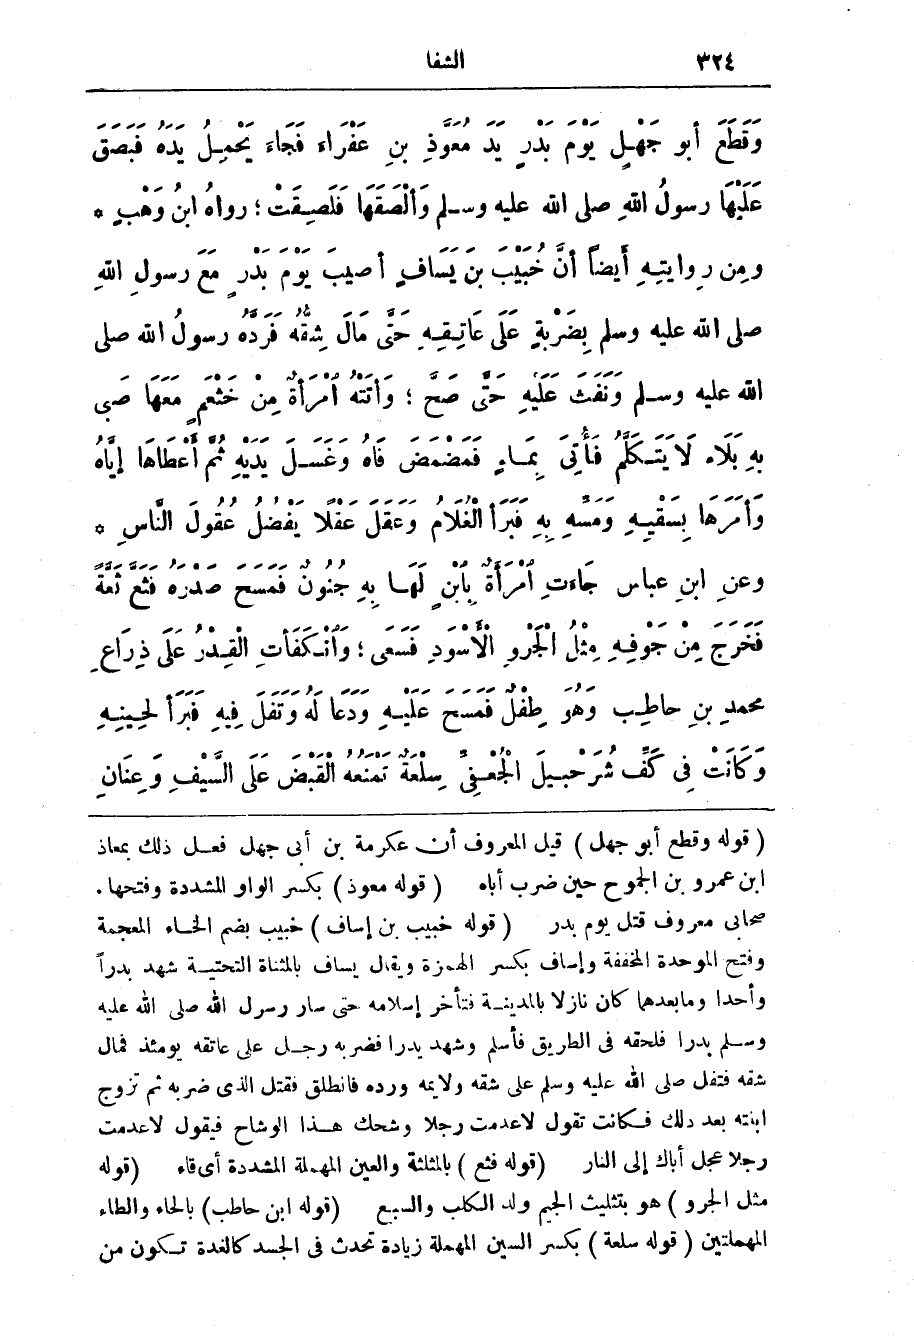 ٣٢٤ الشفا
وَقَطَعَ أبو جَهْلٍ يَوْمَ بَدْرٍ يَدَ مُعَوِّذِ بنِ عَفْرَاءَ فَجَاءَ يَحْمِلُ يَدَهُ فَبَصَقَ
عَلَيْهَا رسولُ اللهِ صلى الله عليه وسلم وَأَلْصَقَهَا فَلَصِقَتْ ؛ رواهُ ابنُ وَهْبٍ *
ومِن رِوايتِهِ أَيضاً أنَّ خُبَيْبَ بنَ يَسَافٍ أُصيبَ يَوْمَ بَدْرٍ مَعَ رسولِ اللهِ
صلى الله عليه وسلم بِضَرْبَةٍ عَلَى عَاتِقِهِ حَتَّى مَالَ شِقُّهُ فَرَدَّهُ رسولُ الله صلى
الله عليه وسلم وَنَفَثَ عَلَيْهِ حَتَّى صَحَّ ؛ وَأَتَتْهُ امْرَأَةٌ مِنْ خَثْعَمٍ مَعَهَا صَبِى
بِهِ بَلَاء لَا يَتَكَلَّمُ فَأُتِىَ بِمَاءٍ فَمَضْمَضَ فَاهُ وَغَسَلَ يَدَيْهِ ثُمَّ أَعْطَاهَا إيَّاهُ
وَأَمَرَهَا بِسَقْيِهِ وَمَسِّهِ بِهِ فَبَرَأَ الْغُلَامُ وَعَقَلَ عَقْلًا يَفْضُلُ عُقُولَ النَّاسِ *
وعنِ ابنِ عباس جَاءَتِ امْرَأَةٌ بِابْنٍ لَهَا بِهِ جُنُونٌ فَمَسَحَ صَدْرَهُ فَثَعَّ ثَعَّةً
فَخَرَجَ مِنْ جَوْفِهِ مِثْلُ الْجَرْوِ الْأَسْوَدِ فَسَعَى ؛ وَانْكَفَأَتِ الْقِدْرُ عَلَى ذِرَاعِ
محمدِ بنِ حاطِبٍ وَهُوَ طِفْلٌ فَمَسَحَ عَلَيْهِ وَدَعَا لَهُ وَتَفَلَ فِيهِ فَبَرَأَ لِحِينِهِ
وَكَانَتْ فِى كَفِّ شُرَحْبِيلَ الْجُعْفِىِّ سِلْعَةٌ تَمْنَعُهُ الْقَبْضَ عَلَى السَّيْفِ وَعِنَانِ
( قوله وقطع أبو جهل ) قيل المعروف أن عكرمة بن أبى جهل فعل ذلك بمعاذ
ابن عمرو بن الجموح حين ضرب أباه ( قوله معوذ ) بكسر الواو المشددة وفتحها .
صحابى معروف قتل يوم بدر ( قوله خبيب بن إساف ) خبيب بضم الخاء المعجمة
وفتح الموحدة المخففة وإساف بكسر الهمزة ويقال يساف بالمثناة التحتية شهد بدراً
وأحدا ومابعدها كان نازلا بالمدينة فتأخر إسلامه حتى سار رسول الله صلى الله عليه
وسلم بدرا فلحقه فى الطريق فأسلم وشهد بدرا فضربه رجل على عاتقه يومئذ فمال
شقه فتفل صلى الله عليه وسلم على شقه ولايمه ورده فانطلق فقتل الذى ضربه ثم تزوج
ابنته بعد ذلك فكانت تقول لاعدمت رجلا وشحك هذا الوشاح فيقول لاعدمت
رجلا عجل أباك إلى النار ( قوله فثع ) بالمثلثة والعين المهملة المشددة أى قاء ( قوله
مثل الجرو ) هو بتثليث الجيم ولد الكلب والسبع ( قوله ابن حاطب ) بالحاء والطاء
المهملتين ( قوله سلعة ) بكسر السين المهملة زيادة تحدث فى الجسد كالغدة تكون من